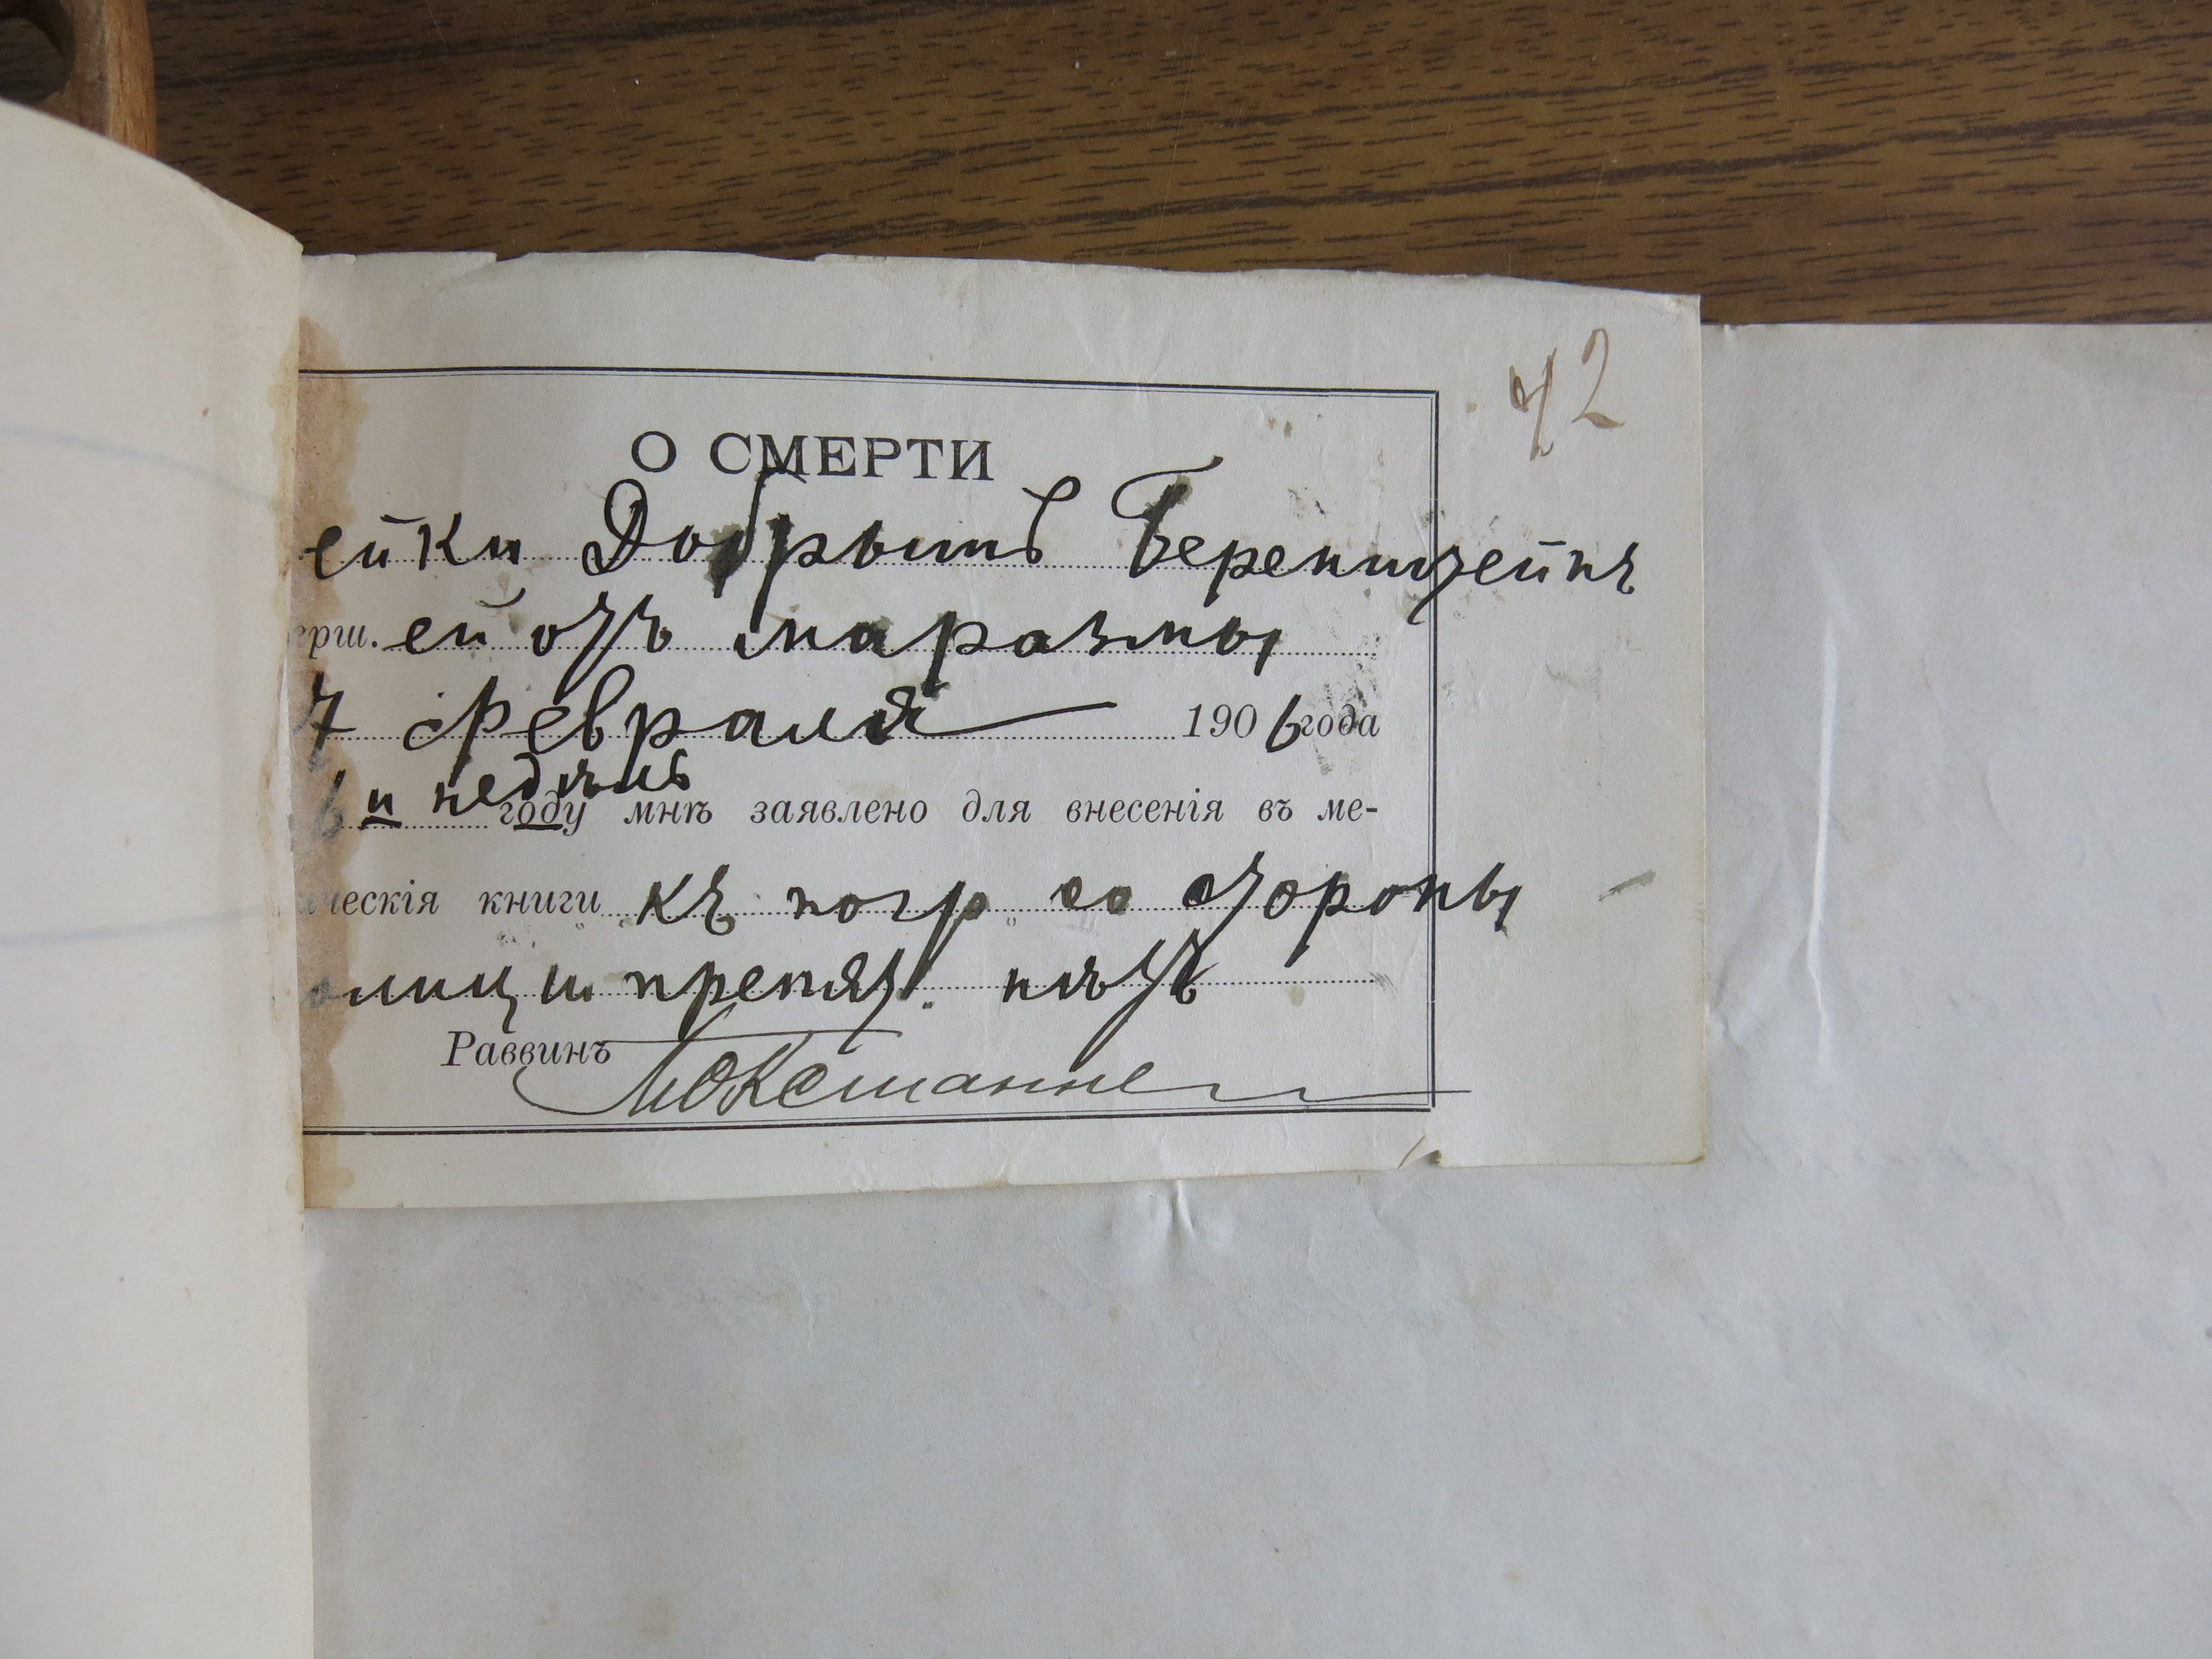 72
О СМЕРТИ
ейки Добрышъ Беренштейнъ
ерш. ей отъ маразмы
7 Февраля 1906 года
6 и недѣль
году мнѣ заявлено для внесенія въ ме-
ческія книги къ погр со стороны
олиціи препят. нѣтъ
Раввинъ